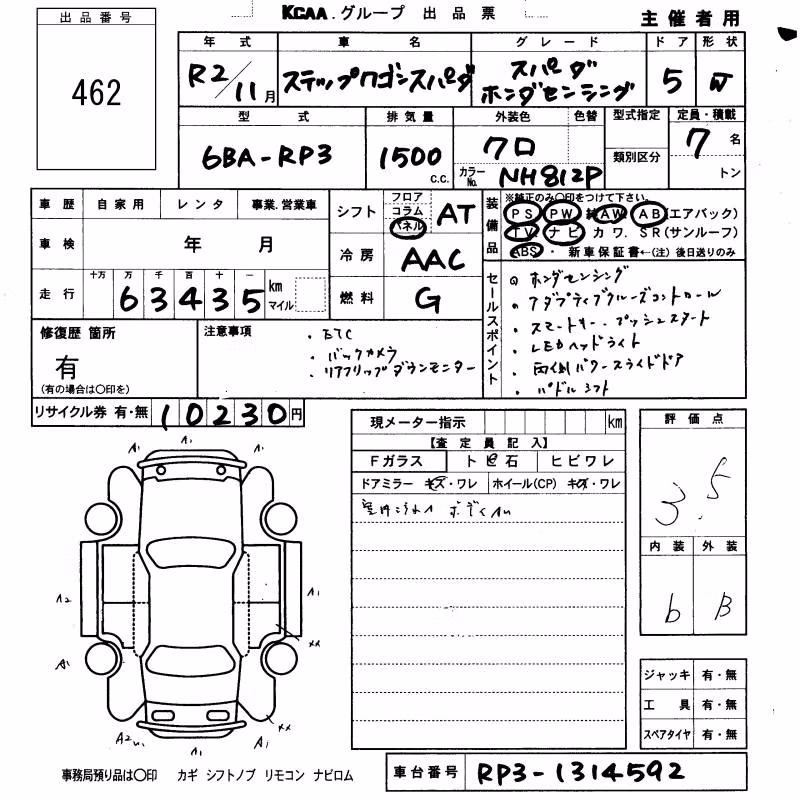 KCAA.グループ 出品票
主催者用
出品番号
462
年式 車名 グレード ドア 形状
R2/11月 ステップワゴンスパーダ スパーダ 5 W
ホンダセンシング
型式 排気量 外装色 色替 型式指定 定員・積載
6BA-RP3 1500 c.c. クロ 類別区分 7名
カラーNo. NH812P トン
車歴 自家用 レンタ 事業.営業車
車検 年 月
走行 十万 万 千 百 十 一
63435 km マイル
シフト フロア コラム パネル AT
冷房 AAC
燃料 G
装備品 ※純正のみ〇印をつけて下さい。
PS PW AW AB(エアバック)
TV ナビ カワ. SR(サンルーフ)
ABS・新車保証書←(注)後日送りのみ
セールスポイント
ホンダセンシング
・アダプティブクルーズコントロール
・スマートキー．プッシュスタート
・LEDヘッドライト
・両側パワースライドドア
・パドルシフト
修復歴 箇所
有
(有の場合は〇印を)
注意事項
・ETC
・バックカメラ
・リアフリップダウンモニター
リサイクル券 有・無 10230円
現メーター指示 km
【査定員記入】
Fガラス トビ石 ヒビワレ
ドアミラー キズ・ワレ ホイール(CP) キズ・ワレ
評価点
3.5
内装 外装
b B
A1 A1 A1
A2 A1
A1 XX
XX
A2 A1 A1
ジャッキ 有・無
工具 有・無
スペアタイヤ 有・無
事務局預り品は〇印 カギ シフトノブ リモコン ナビロム
車台番号 RP3-1314592